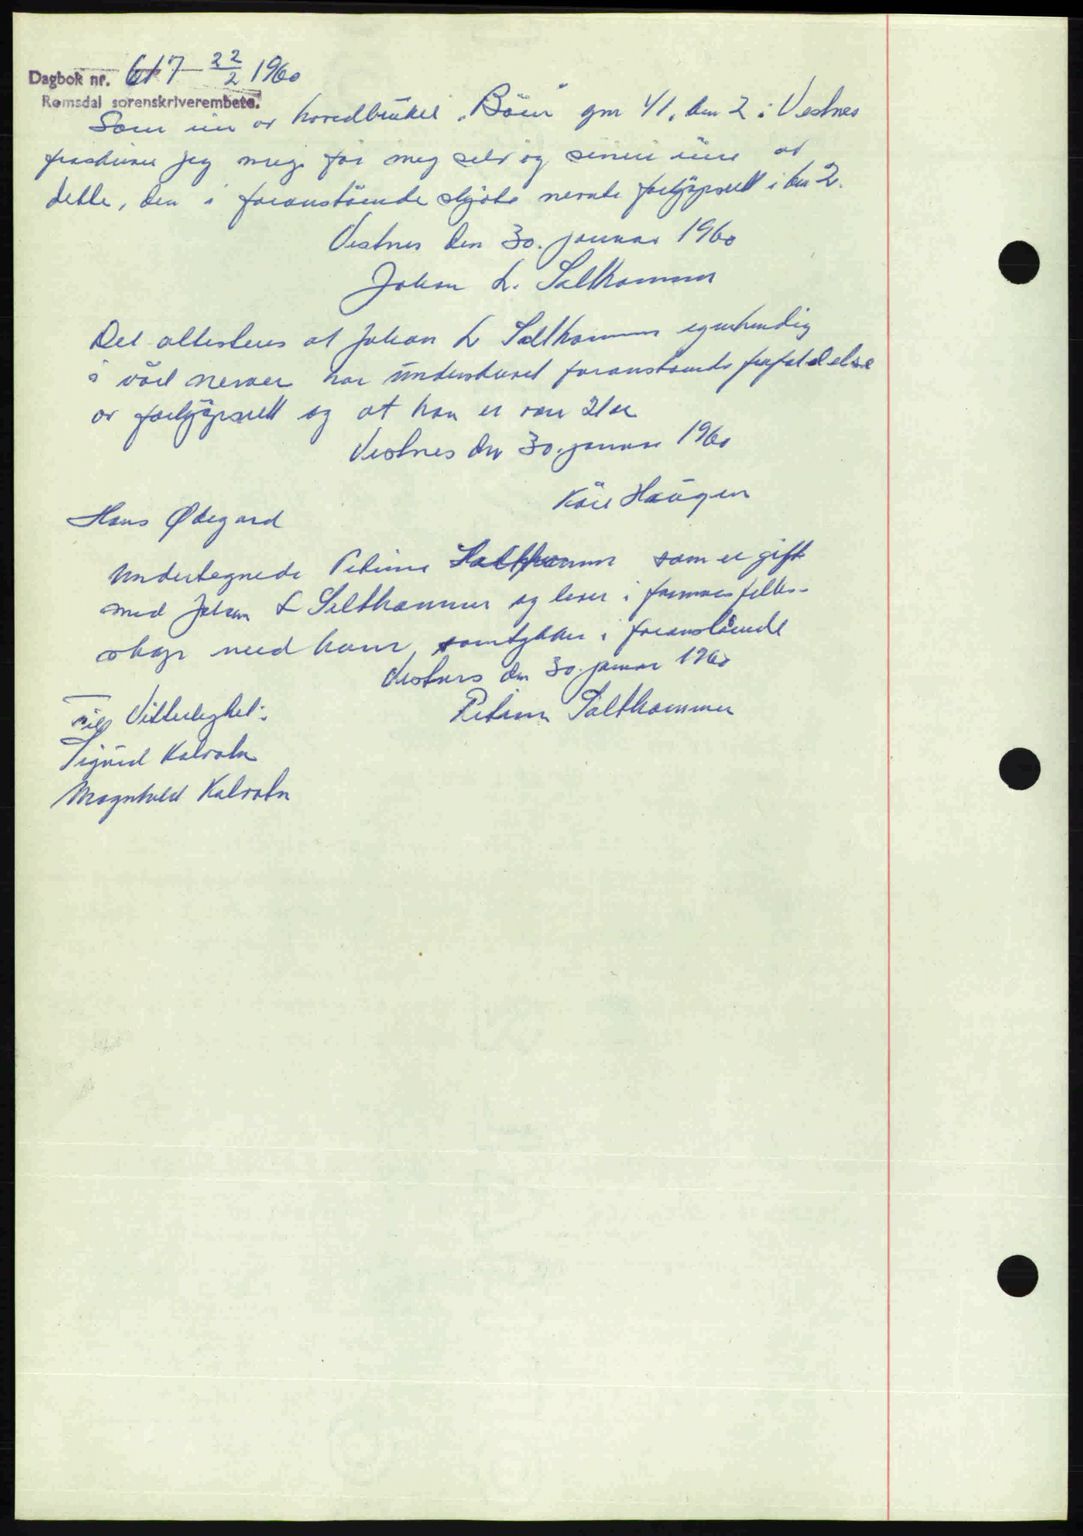 Dagbok nr. 617 - 22/2 1960
Romsdal sorenskriverembete.
Som eier av hovedbruket "Böen" gnr 41, bnr 2 i Vestnes
fraskriver jeg meg for meg selv og senere eiere av
dette, den i foranstående skjöte nevnte forkjöpsrett i bnr 2.
Vestnes den 30. januar 1960
Johan L. Salthammer
Det attesteres at Johan L Salthammer egenhendig
i vårt nervær har underskrevet foranstående frafallelse
av forkjöpsrett og at han er over 21 år
Vestnes den 30. januar 1960
Kåre Haugen
Hans Ødegard
Undertegnede Petrine Salthammer som er gift
med Johan L Salthammer og lever i formuesfelles-
skap med ham, samtykker i foranstående
Vestnes den 30. januar 1960
Petrine Salthammer
Til Vitterlighet:
Sigurd Kalvatn
Magnhild Kalvatn